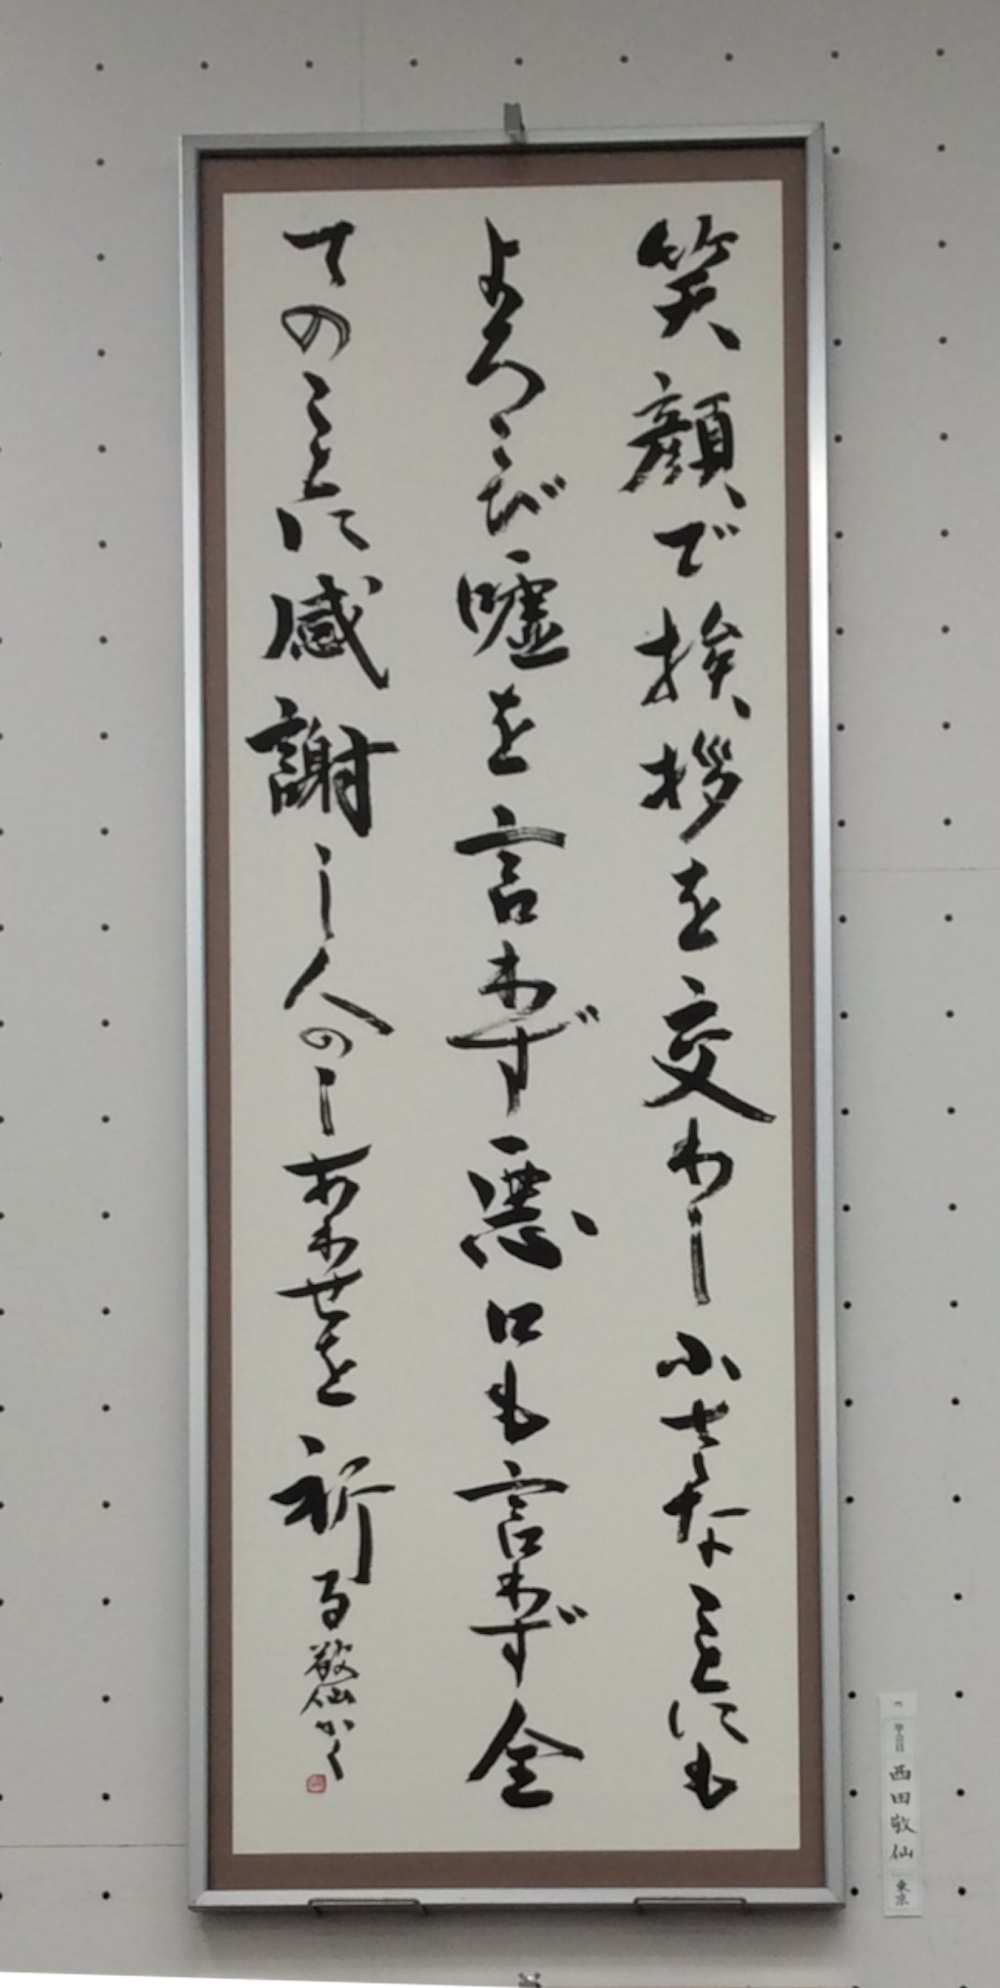 笑顔で挨拶を交わし小さなことにも
よろこび嘘を言わず悪口も言わず全
てのことに感謝し人のしあわせを祈る
敬仙かく
西田敬仙
東京